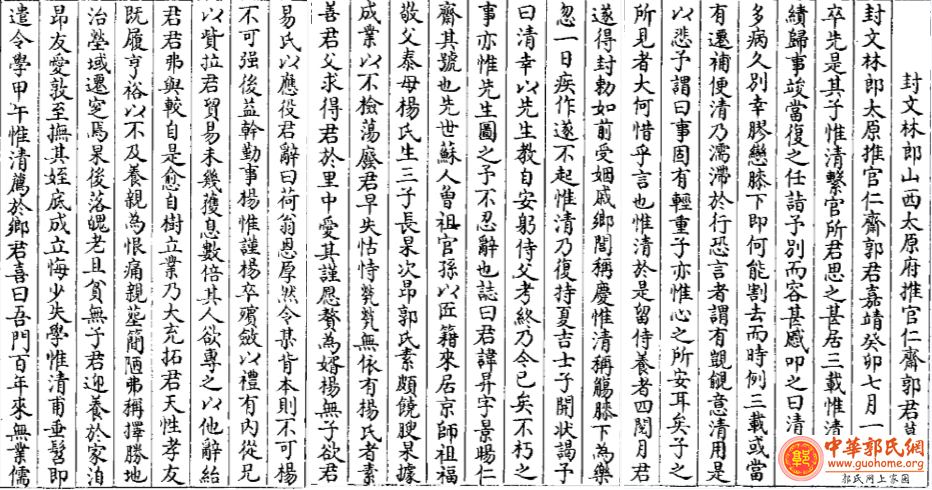 封文林郎山西太原府推官仁齋郭君墓
封文林郎太原推官仁齋郭君嘉靖癸卯七月一
卒先是其子惟清繫官所君思之甚居三載惟清
績歸事竣當復之任請予別而容甚慼叩之曰清
多病久別幸膠戀膝下即何能割去而時例三載或當
有遷補便清乃濡滯於行恐言者謂有覬覦意清用是
以悲予謂曰事固有輕重子亦惟心之所安耳矣子之
所見者大何惜乎言也惟清於是留侍養者四閱月君
遂得封勅如前受姻戚鄉閭稱慶惟清稱觴膝下為樂
忽一日疾作遂不起惟清乃復持夏吉士子開狀謁予
曰清幸以先生教自安躬侍父考終乃今已矣不朽之
事亦惟先生圖之予不忍辭也誌曰君諱昇字景暘仁
齋其號也先世蘇人曾祖官孫以匠籍來居京師祖福
敬父泰母楊氏生三子長杲次昂郭氏素頗饒腴杲據
成業以不檢蕩廢君早失怙恃煢煢無依有楊氏者素
善君父求得君於里中愛其謹愿贅為婿楊無子欲君
易氏以應役君辭曰荷翁恩厚然令某背本則不可楊
不可强後益幹勤事楊惟謹楊卒殯斂以禮有內從兄
以貲拉君貿易未幾獲息數倍其人欲專之以他辭紿
君君弗與較自是愈自樹立業乃大充拓君天性孝友
既履亨裕以不及養親為恨痛親塟簡陋弗稱擇勝地
治塋域遷窆焉杲後落魄老且貧無子君迎養於家洎
昂友愛敦至撫其姪底成立悔少失學惟清甫垂髫即
遣令學甲午惟清薦於鄉君喜曰吾門百年來無業儒
中華郭氏網
www.guohome.org
郭氏网上家園